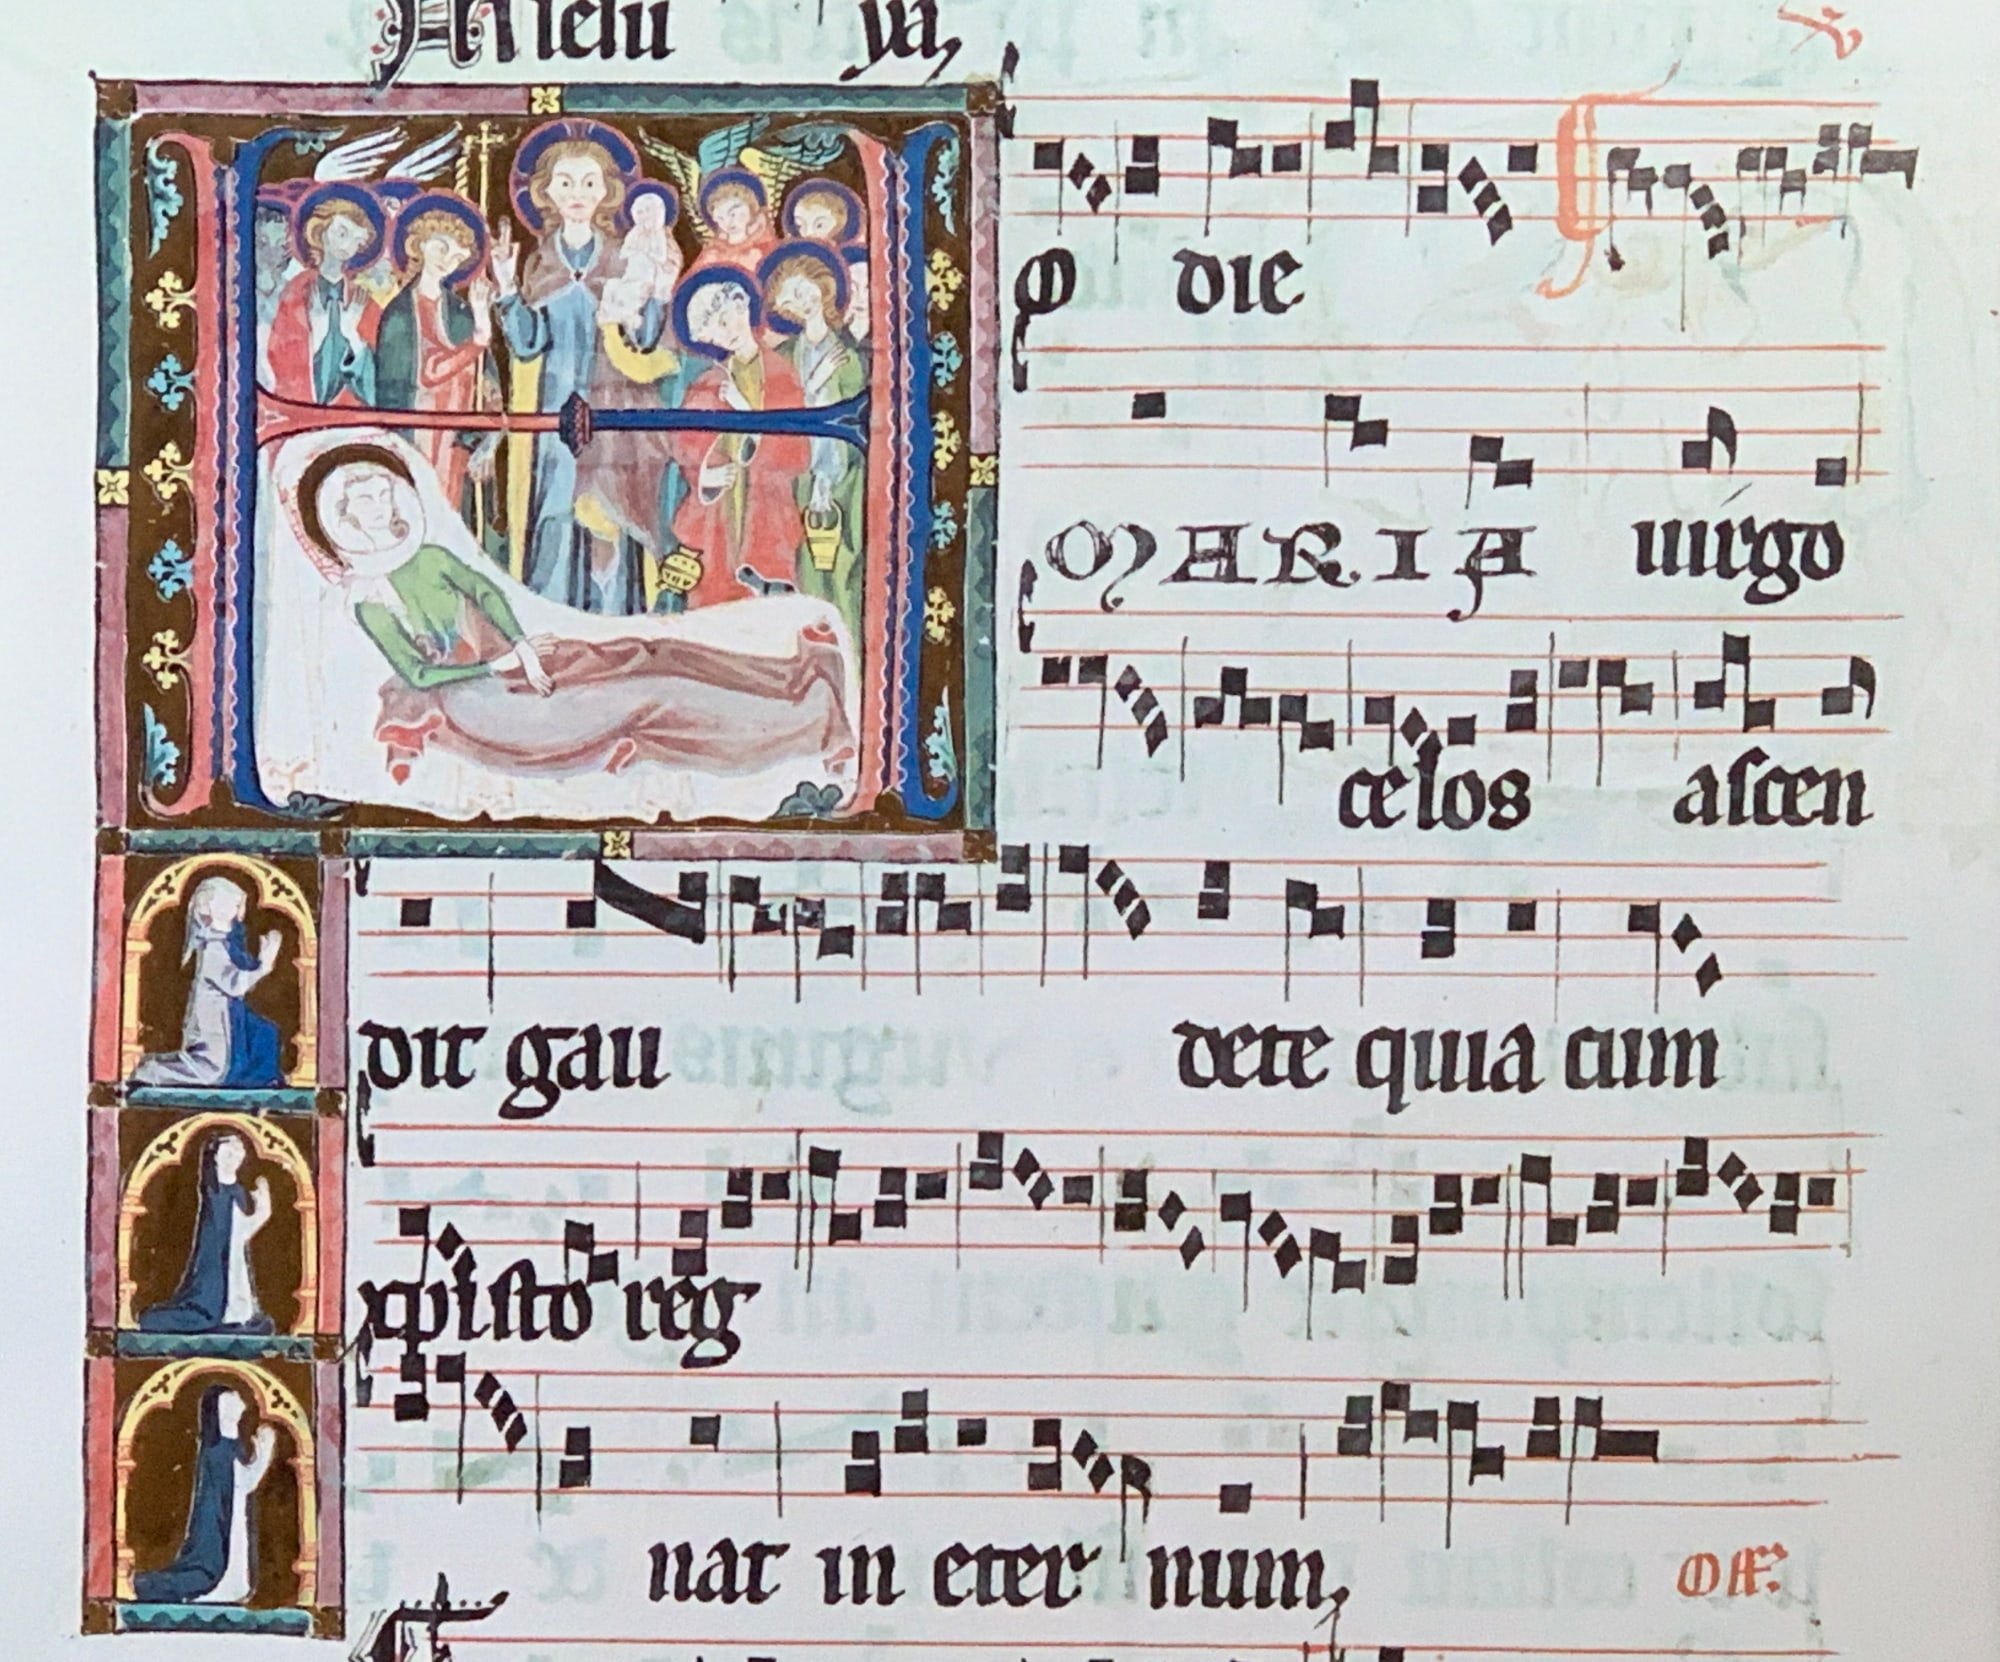 Alleluya,
Hodie
MARIA uirgo
celos ascen
dit gau dete quia cum
xpisto reg
nat in eter num,
Off